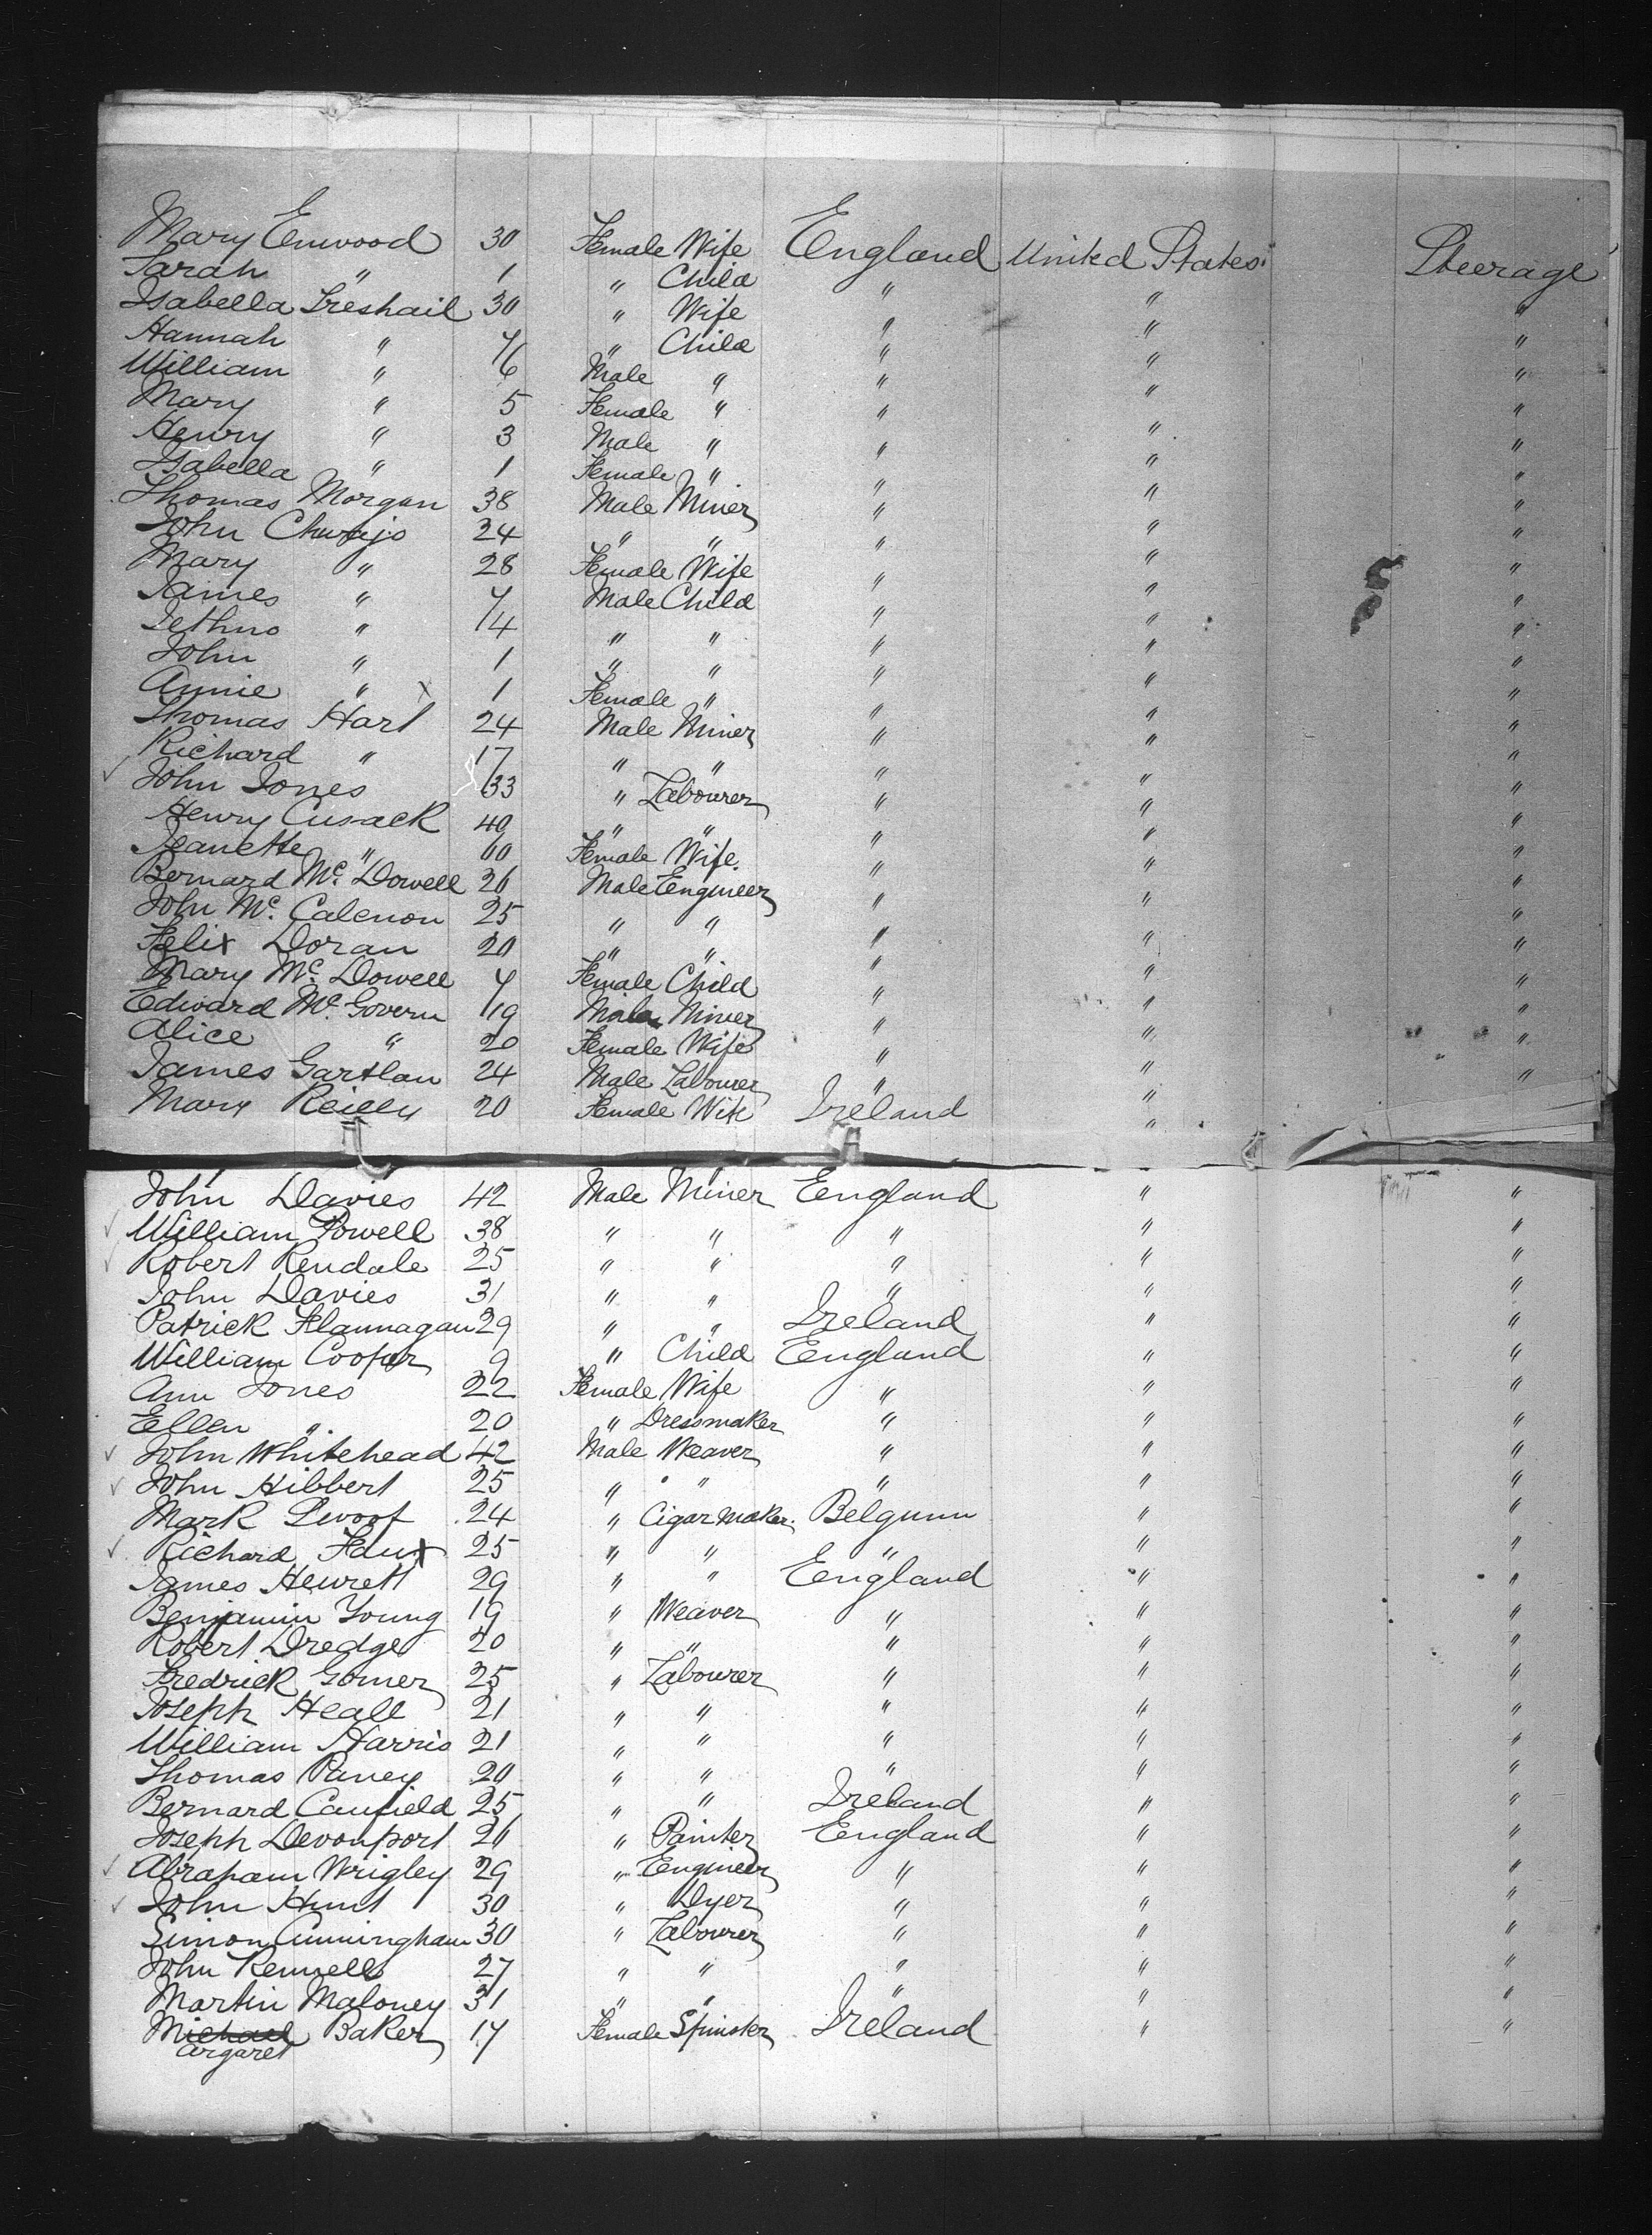 Mary Emwood 30 Female Wife England United States Steerage
Sarah " 1 " Child " " "
Isabella Treshail 30 " Wife " " "
Hannah " 7 " Child " " "
William " 6 Male " " " "
Mary " 5 Female " " " "
Henry " 3 Male " " " "
Isabella " 1 Female " " " "
Thomas Morgan 38 Male Miner " " "
John 24 " " " " "
Mary " 28 Female Wife " " "
James " 7 Male Child " " "
" 4 " " " " "
John " 1 " " " " "
Annie " x 1 Female " " " "
Thomas Hart 24 Male Miner " " "
Richard " 17 " " " " "
John Jones 33 " Labourer " " "
Henry Cusack 40 " " " " "
Jeanette " 60 Female Wife " " "
Bernard Mc. Dowell 26 Male Engineer " " "
John Mc. Calenon 25 " " " " "
Felix Doran 20 " " " " "
Mary Mc. Dowell 7 Female Child " " "
Edward Mc. Govern 19 Male Miner " " "
Alice " 20 Female Wife " " "
James Gartlan 24 Male Labourer " " "
Mary Reilly 20 Female Wife Ireland "
John Davies 42 Male Miner England " "
William Powell 38 " " " " "
Robert Rendale 25 " " " " "
John Davies 31 " " " " "
Patrick Flannagan 29 " " Ireland " "
William Cooper 9 " Child England " "
Ann Jones 22 Female Wife " " "
Ellen " 20 " Dressmaker " " "
John Whitehead 42 Male Weaver " " "
John Hibbert 25 " " " " "
Mark 24 " Cigar maker. Belgium " "
Richard Faux 25 " " " " "
James Hewett 29 " " England " "
Benjamin Young 19 " Weaver " " "
Robert Dredge 20 " " " " "
Fredrick Gomer 25 " Labourer " " "
Joseph Heall 21 " " " " "
William Harris 21 " " " " "
Thomas Paney 20 " " " " "
Bernard Caufield 25 " " Ireland " "
Joseph Devonport 26 " Painter England " "
Abraham Wrigley 29 " Engineer " " "
John Hunt 30 " Dyer " " "
Simon Cunningham 30 " Labourer " " "
John Kennells 27 " " " " "
Martin Maloney 31 " " " " "
Michael Baker 17 Female Spinster Ireland " "
argaret